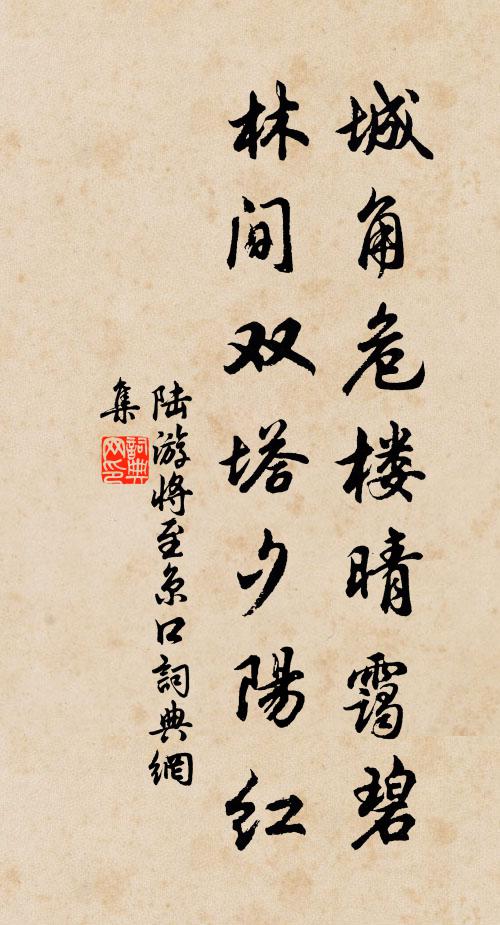 城角危楼晴霭碧
林间双塔夕陽红
陆游将至京口詞典網
集
詞典网印